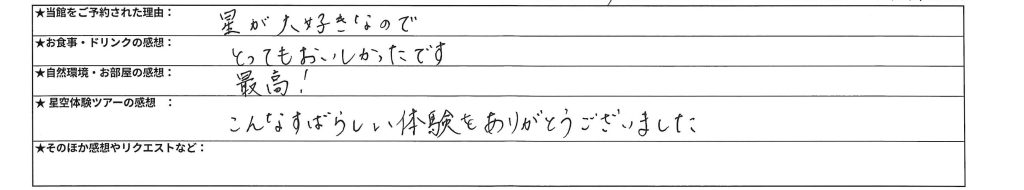 ★当館をご予約された理由: 星が大好きなので
★お食事・ドリンクの感想: とってもおいしかったです
★自然環境・お部屋の感想: 最高!
★ 星空体験ツアーの感想 : こんなすばらしい体験をありがとうございました
★そのほか感想やリクエストなど: